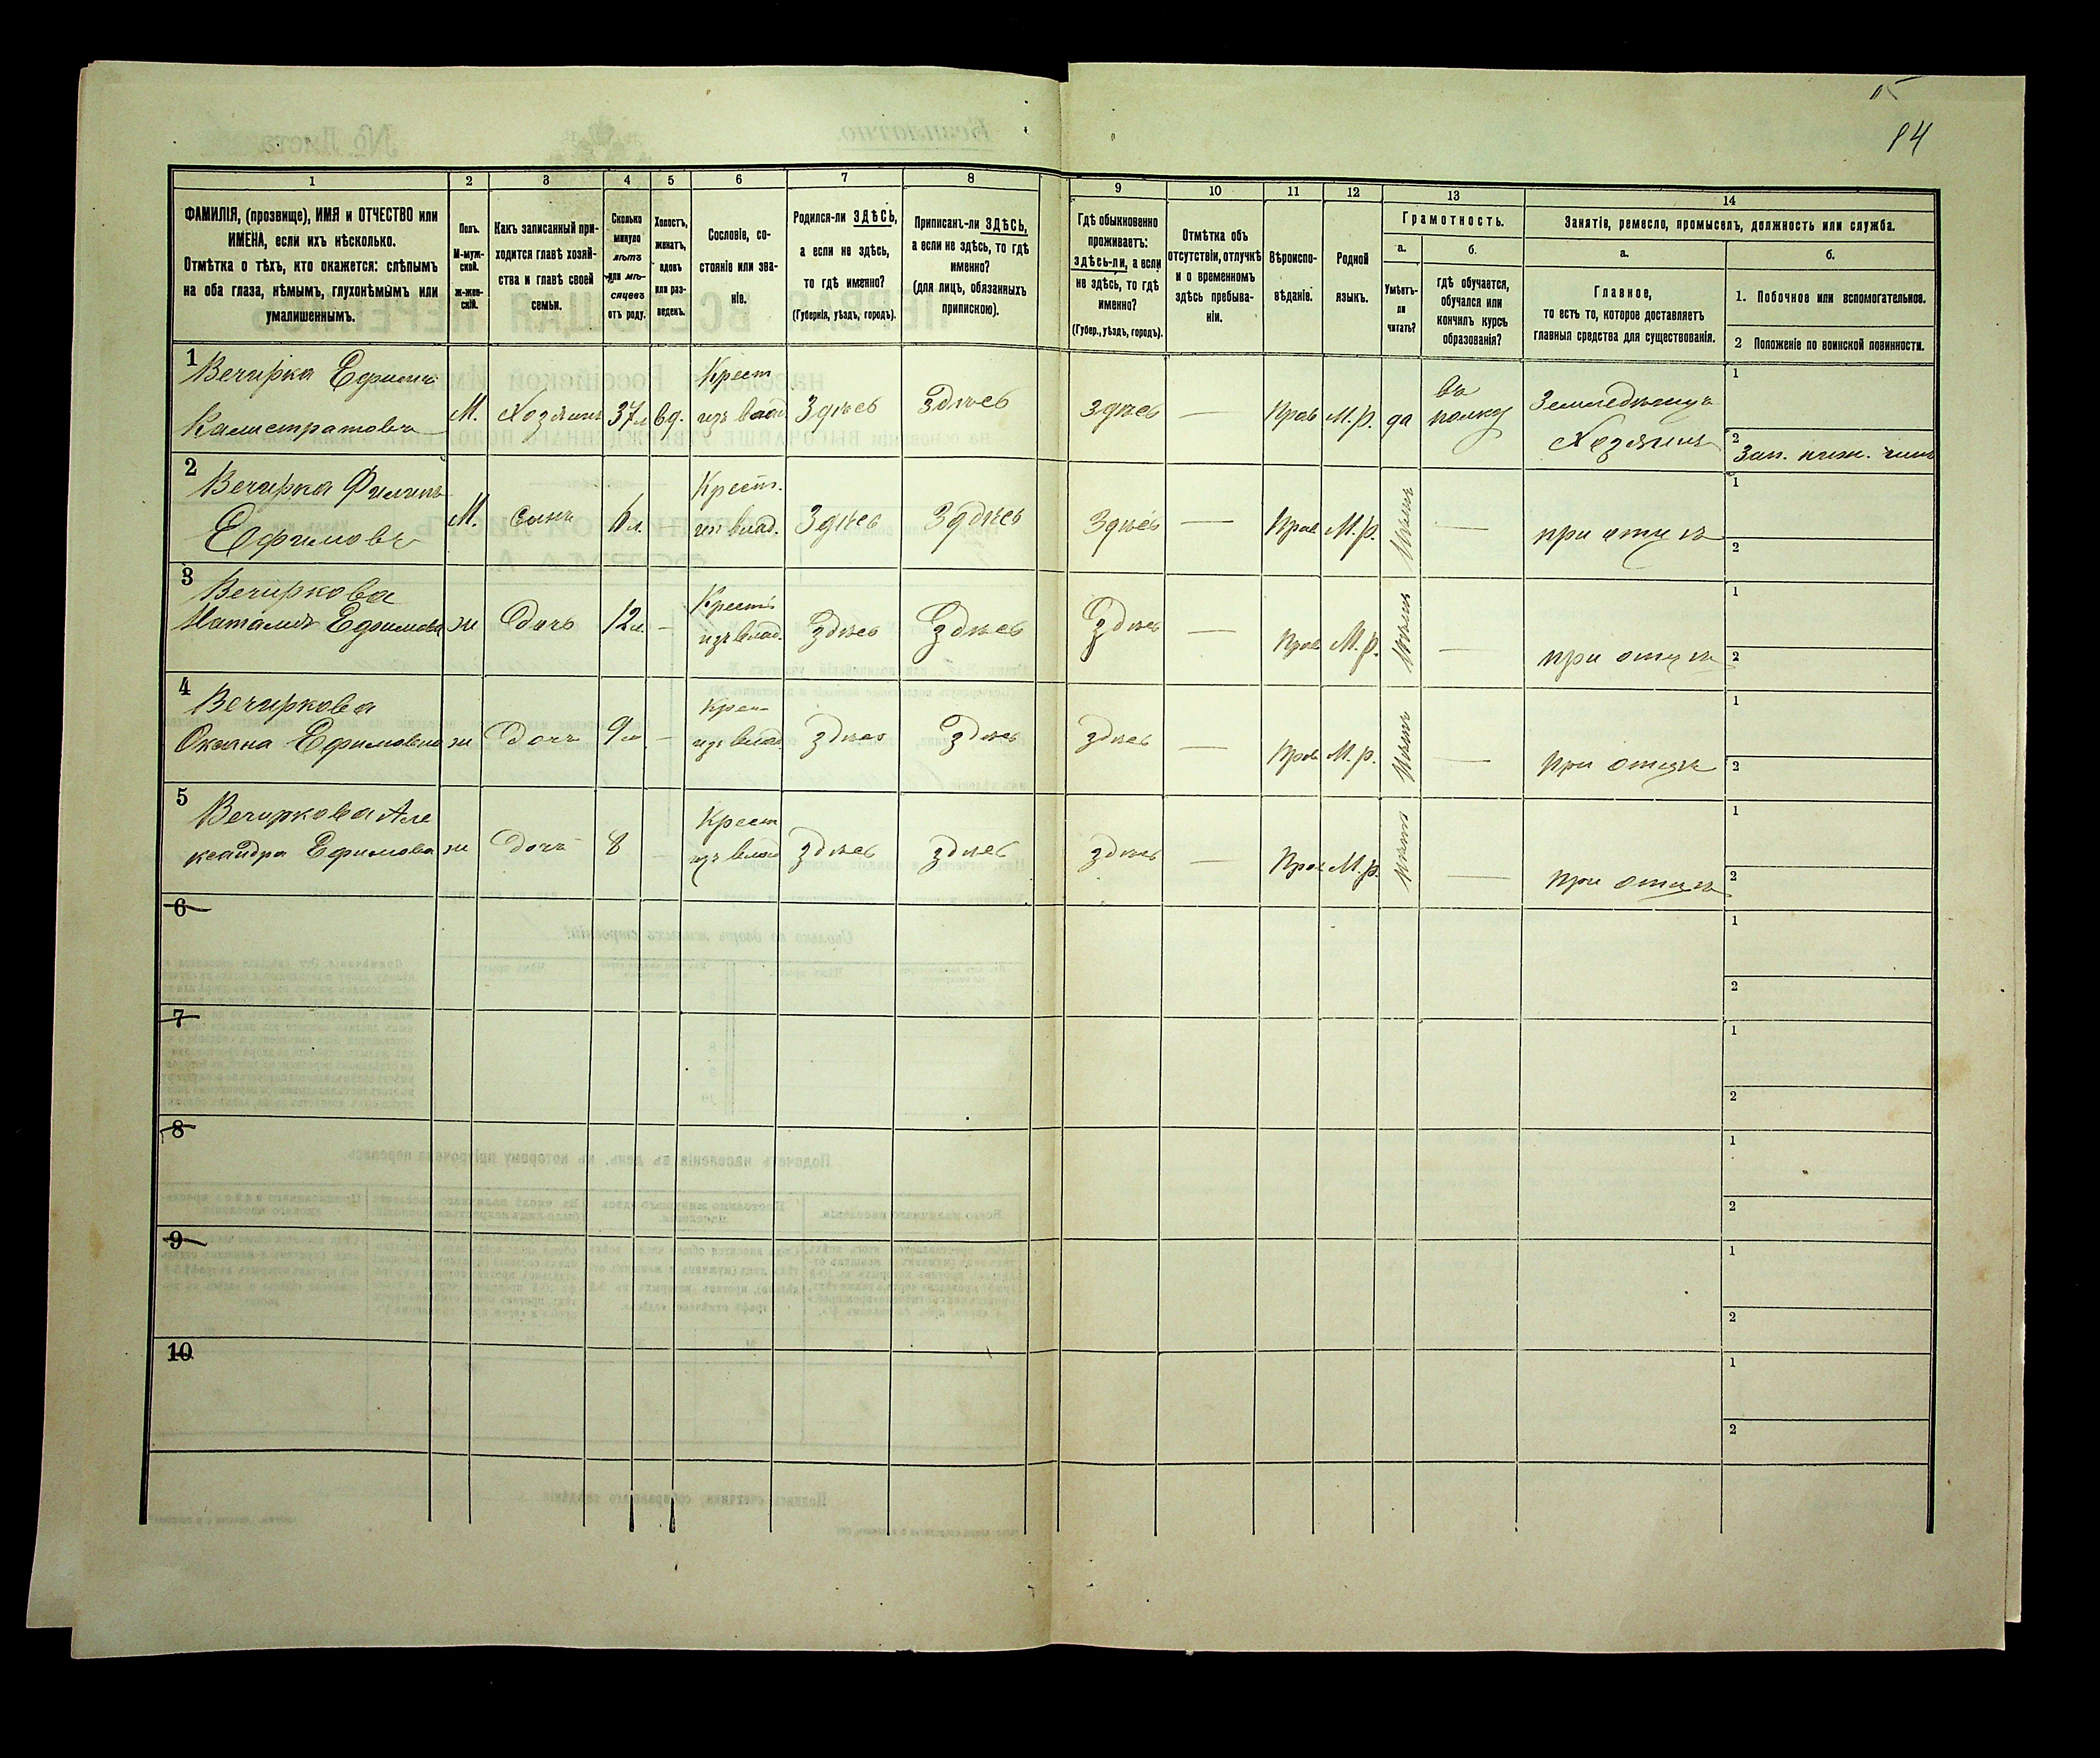 14
1 2 3 4 5 6 7 8 9 10 11 12 13 14
ФАМИЛІЯ, (прозвище), ИМЯ и ОТЧЕСТВО или
ИМЕНА, если ихъ нѣсколько.
Отмѣтка о тѣхъ, кто окажется: слѣпымъ
на оба глаза, нѣмымъ, глухонѣмымъ или
умалишеннымъ.
Полъ.
М-муж-
ской.
ж-жен-
скій.
Какъ записанный при-
ходится главѣ хозяй-
ства и главѣ своей
семьи.
Сколько
минуло
лѣтъ
или мѣ-
сяцевъ
отъ роду.
Холостъ,
женатъ,
вдовъ
или раз-
веденъ.
Сословіе, со-
стояніе или зва-
ніе.
Родился-ли ЗДѢСЬ,
а если не здѣсь,
то гдѣ именно?
(Губернія, уѣздъ, городъ).
Приписанъ-ли ЗДѢСЬ,
а если не здѣсь, то гдѣ
именно?
(для лицъ, обязанныхъ
припискою).
Гдѣ обыкновенно
проживаетъ:
здѣсь-ли, а если
не здѣсь, то гдѣ
именно?
(Губер., уѣздъ, городъ).
Отмѣтка объ
отсутствіи, отлучкѣ
и о временномъ
здѣсь пребыва-
ніи.
Вѣроиспо-
вѣданіе.
Родной
языкъ.
Грамотность.
а.
Умѣетъ-
ли
читать?
б.
гдѣ обучается,
обучался или
кончилъ курсъ
образованія?
Занятіе, ремесло, промыселъ, должность или служба.
а.
Главное,
то есть то, которое доставляетъ
главныя средства для существованія.
б.
1. Побочное или вспомогательное.
2 Положеніе по воинской повинности.
1
Вечирка Ефимъ
Калистратовъ
М. Хозяинъ 37 л вд.
Крест
изъ влад.
Здѣсь Здѣсь здѣсь — Прав М.р. да
въ
полку
Земледѣлецъ
Хозяинъ
1
2
Зап. ниж. чинъ
2
Вечирка Филипъ
Ефимовъ
М. сынъ л. —
Крест.
изъ влад.
Здѣсь Здѣсь Здѣсь — Прав М.р. нѣтъ — при отцѣ
1
2
3
Вечиркова
Наталия Ефимова
ж Дочь 12 л. —
Крест
изъ влад.
Здѣсь Здѣсь Здѣсь — Прав М.р. нѣтъ — при отцѣ
1
2
4
Вечиркова
Оксана Ефимовна
ж Дочь 9 л —
Крест
изъ влад
Здѣсь Здѣсь здѣсь — Прав М.р. нѣтъ — при отцѣ
1
2
5
Вечиркова Але
ксандра Ефимова
ж Дочь 8 —
Крест
изъ влад
здѣсь здѣсь здѣсь — Прав М.р. нѣтъ — при отцѣ
1
2
6
1
2
7
1
2
8
1
2
9
1
2
10
1
2